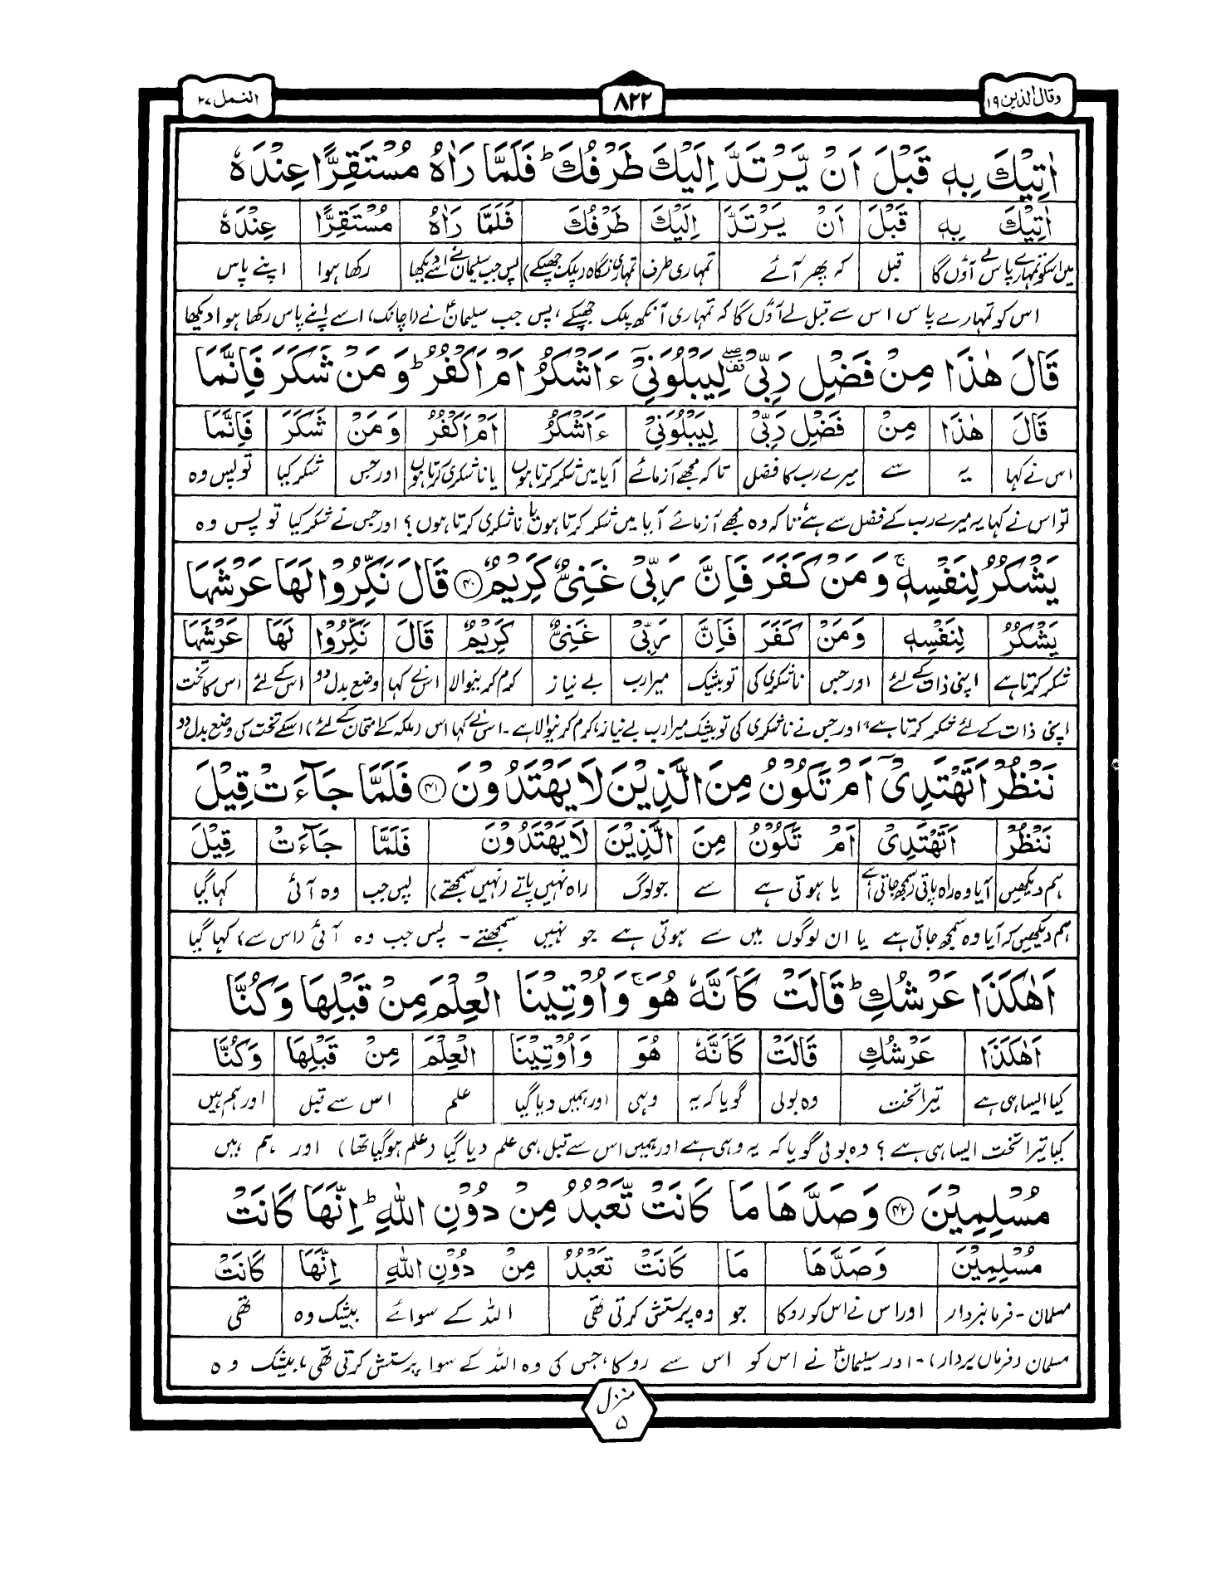 وقال الذین ۱۹
۸۲۲
النمل ۲۷
اٰتِیْكَ بِهٖ قَبْلَ اَنْ یَّرْتَدَّ اِلَیْكَ طَرْفُكَ ؕ فَلَمَّا رَاٰهُ مُسْتَقِرًّا عِنْدَهٗ
اٰتِیْكَ بِهٖ قَبْلَ اَنْ یَرْتَدَّ اِلَیْكَ طَرْفُكَ فَلَمَّا رَاٰهُ مُسْتَقِرًّا عِنْدَهٗ
میں اسکو تمہارے پاس لے آؤں گا قبل کہ پھر آئے تمہاری طرف تمہاری نگاہ (پلک جھپکے) پس جب سلیمان نے اسے دیکھا رکھا ہوا اپنے پاس
اس کو تمہارے پاس اس سے قبل لے آؤں گا کہ تمہاری آنکھ پلک جھپکے، پس جب سلیمانؑ نے (اچانک) اسے اپنے پاس رکھا ہوا دیکھا
قَالَ هٰذَا مِنْ فَضْلِ رَبِّیْ ۖ۫ لِیَبْلُوَنِیْۤ ءَاَشْكُرُ اَمْ اَكْفُرُ ؕ وَ مَنْ شَكَرَ فَاِنَّمَا
قَالَ هٰذَا مِنْ فَضْلِ رَبِّیْ لِیَبْلُوَنِیْۤ ءَاَشْكُرُ اَمْ اَكْفُرُ وَمَنْ شَكَرَ فَاِنَّمَا
اس نے کہا یہ سے میرے رب کا فضل تاکہ مجھے آزمائے آیا میں شکر کرتا ہوں یا ناشکری کرتا ہوں اور جس شکر کیا تو پس وہ
تو اس نے کہا یہ میرے رب کے فضل سے ہے، تاکہ وہ مجھے آزمائے آیا میں شکر کرتا ہوں یا ناشکری کرتا ہوں؟ اور جس نے شکر کیا تو پس وہ
یَشْكُرُ لِنَفْسِهٖ ۚ وَ مَنْ كَفَرَ فَاِنَّ رَبِّیْ غَنِیٌّ كَرِیْمٌ ﴿۴۰﴾ قَالَ نَكِّرُوْا لَهَا عَرْشَهَا
یَشْكُرُ لِنَفْسِهٖ وَمَنْ كَفَرَ فَاِنَّ رَبِّیْ غَنِیٌّ كَرِیْمٌ قَالَ نَكِّرُوْا لَهَا عَرْشَهَا
شکر کرتا ہے اپنی ذات کے لئے اور جس ناشکری کی تو بیشک میرا رب بے نیاز کرم کرنیوالا اس نے کہا وضع بدل دو اس کے لئے اس کا تخت
اپنی ذات کے لئے شکر کرتا ہے، اور جس نے ناشکری کی تو بیشک میرا رب بے نیاز، کرم کرنیوالا ہے۔ اس نے کہا اس (ملکہ کے امتحان کے لئے) اسکے تخت کی وضع بدل دو
نَنْظُرْ اَتَهْتَدِیْۤ اَمْ تَكُوْنُ مِنَ الَّذِیْنَ لَا یَهْتَدُوْنَ ﴿۴۱﴾ فَلَمَّا جَآءَتْ قِیْلَ
نَنْظُرْ اَتَهْتَدِیْۤ اَمْ تَكُوْنُ مِنَ الَّذِیْنَ لَا یَهْتَدُوْنَ فَلَمَّا جَآءَتْ قِیْلَ
ہم دیکھیں آیا وہ راہ پاتی (سمجھ جاتی) ہے یا ہوتی ہے سے جو لوگ راہ نہیں پاتے (نہیں سمجھتے) پس جب وہ آئی کہا گیا
ہم دیکھیں کہ آیا وہ سمجھ جاتی ہے یا ان لوگوں میں سے ہوتی ہے جو نہیں سمجھتے۔ پس جب وہ آئی (اس سے) کہا گیا
اَهٰكَذَا عَرْشُكِ ؕ قَالَتْ كَاَنَّهٗ هُوَ ۚ وَ اُوْتِیْنَا الْعِلْمَ مِنْ قَبْلِهَا وَ كُنَّا
اَهٰكَذَا عَرْشُكِ قَالَتْ كَاَنَّهٗ هُوَ وَاُوْتِیْنَا الْعِلْمَ مِنْ قَبْلِهَا وَكُنَّا
کیا ایسا ہی ہے تیرا تخت وہ بولی گویا کہ یہ وہی اور ہمیں دیا گیا علم اس سے قبل اور ہم ہیں
کیا تیرا تخت ایسا ہی ہے؟ وہ بولی گویا کہ یہ وہی ہے اور ہمیں اس سے قبل ہی علم دیا گیا (علم ہوگیا تھا) اور ہم ہیں
مُسْلِمِیْنَ ﴿۴۲﴾ وَ صَدَّهَا مَا كَانَتْ تَّعْبُدُ مِنْ دُوْنِ اللّٰهِ ؕ اِنَّهَا كَانَتْ
مُسْلِمِیْنَ وَصَدَّهَا مَا كَانَتْ تَعْبُدُ مِنْ دُوْنِ اللّٰهِ اِنَّهَا كَانَتْ
مسلمان - فرمانبردار اور اس نے اس کو روکا جو وہ پرستش کرتی تھی اللہ کے سوائے بیشک وہ تھی
مسلمان (فرماں بردار)۔ اور سلیمانؑ نے اس کو اس سے روکا، جس کی وہ اللہ کے سوا پرستش کرتی تھی، بیشک وہ
منزل
۵